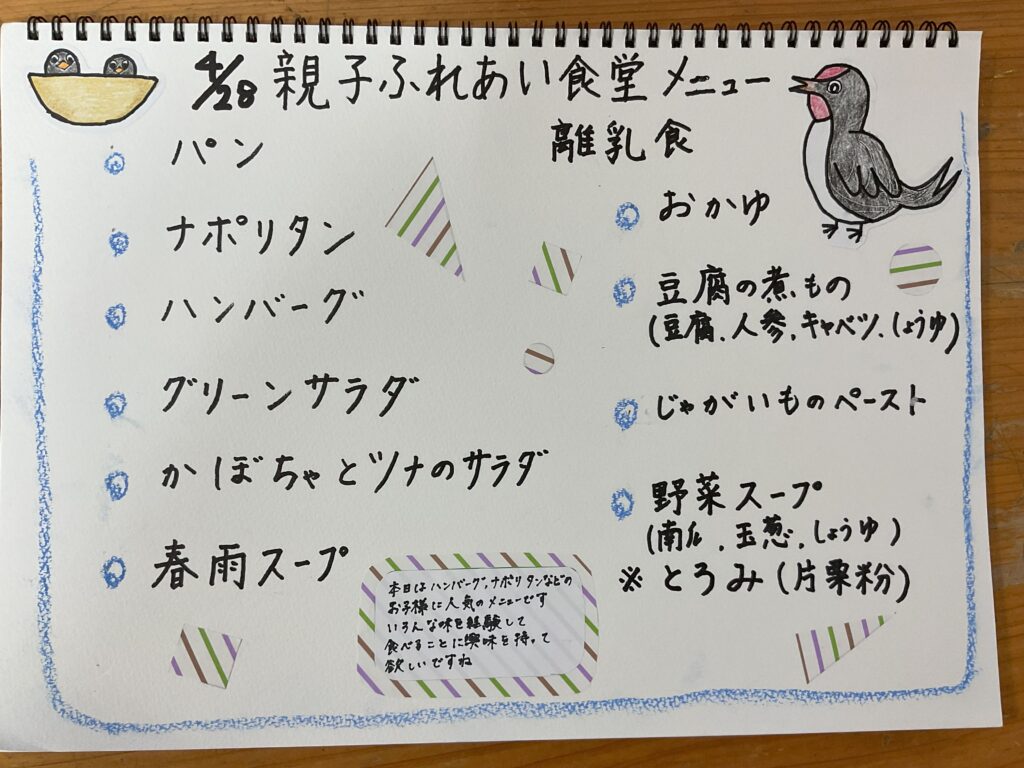 4/28 親子ふれあい食堂メニュー
パン
ナポリタン
ハンバーグ
グリーンサラダ
かぼちゃとツナのサラダ
春雨スープ
離乳食
おかゆ
豆腐の煮もの
(豆腐.人参.キャベツ.しょうゆ)
じゃがいものペースト
野菜スープ
(南瓜.玉葱.しょうゆ)
※とろみ(片栗粉)
本日はハンバーグ,ナポリタンなどの
お子様に人気のメニューです
いろんな味を経験して
食べることに興味を持って
欲しいですね